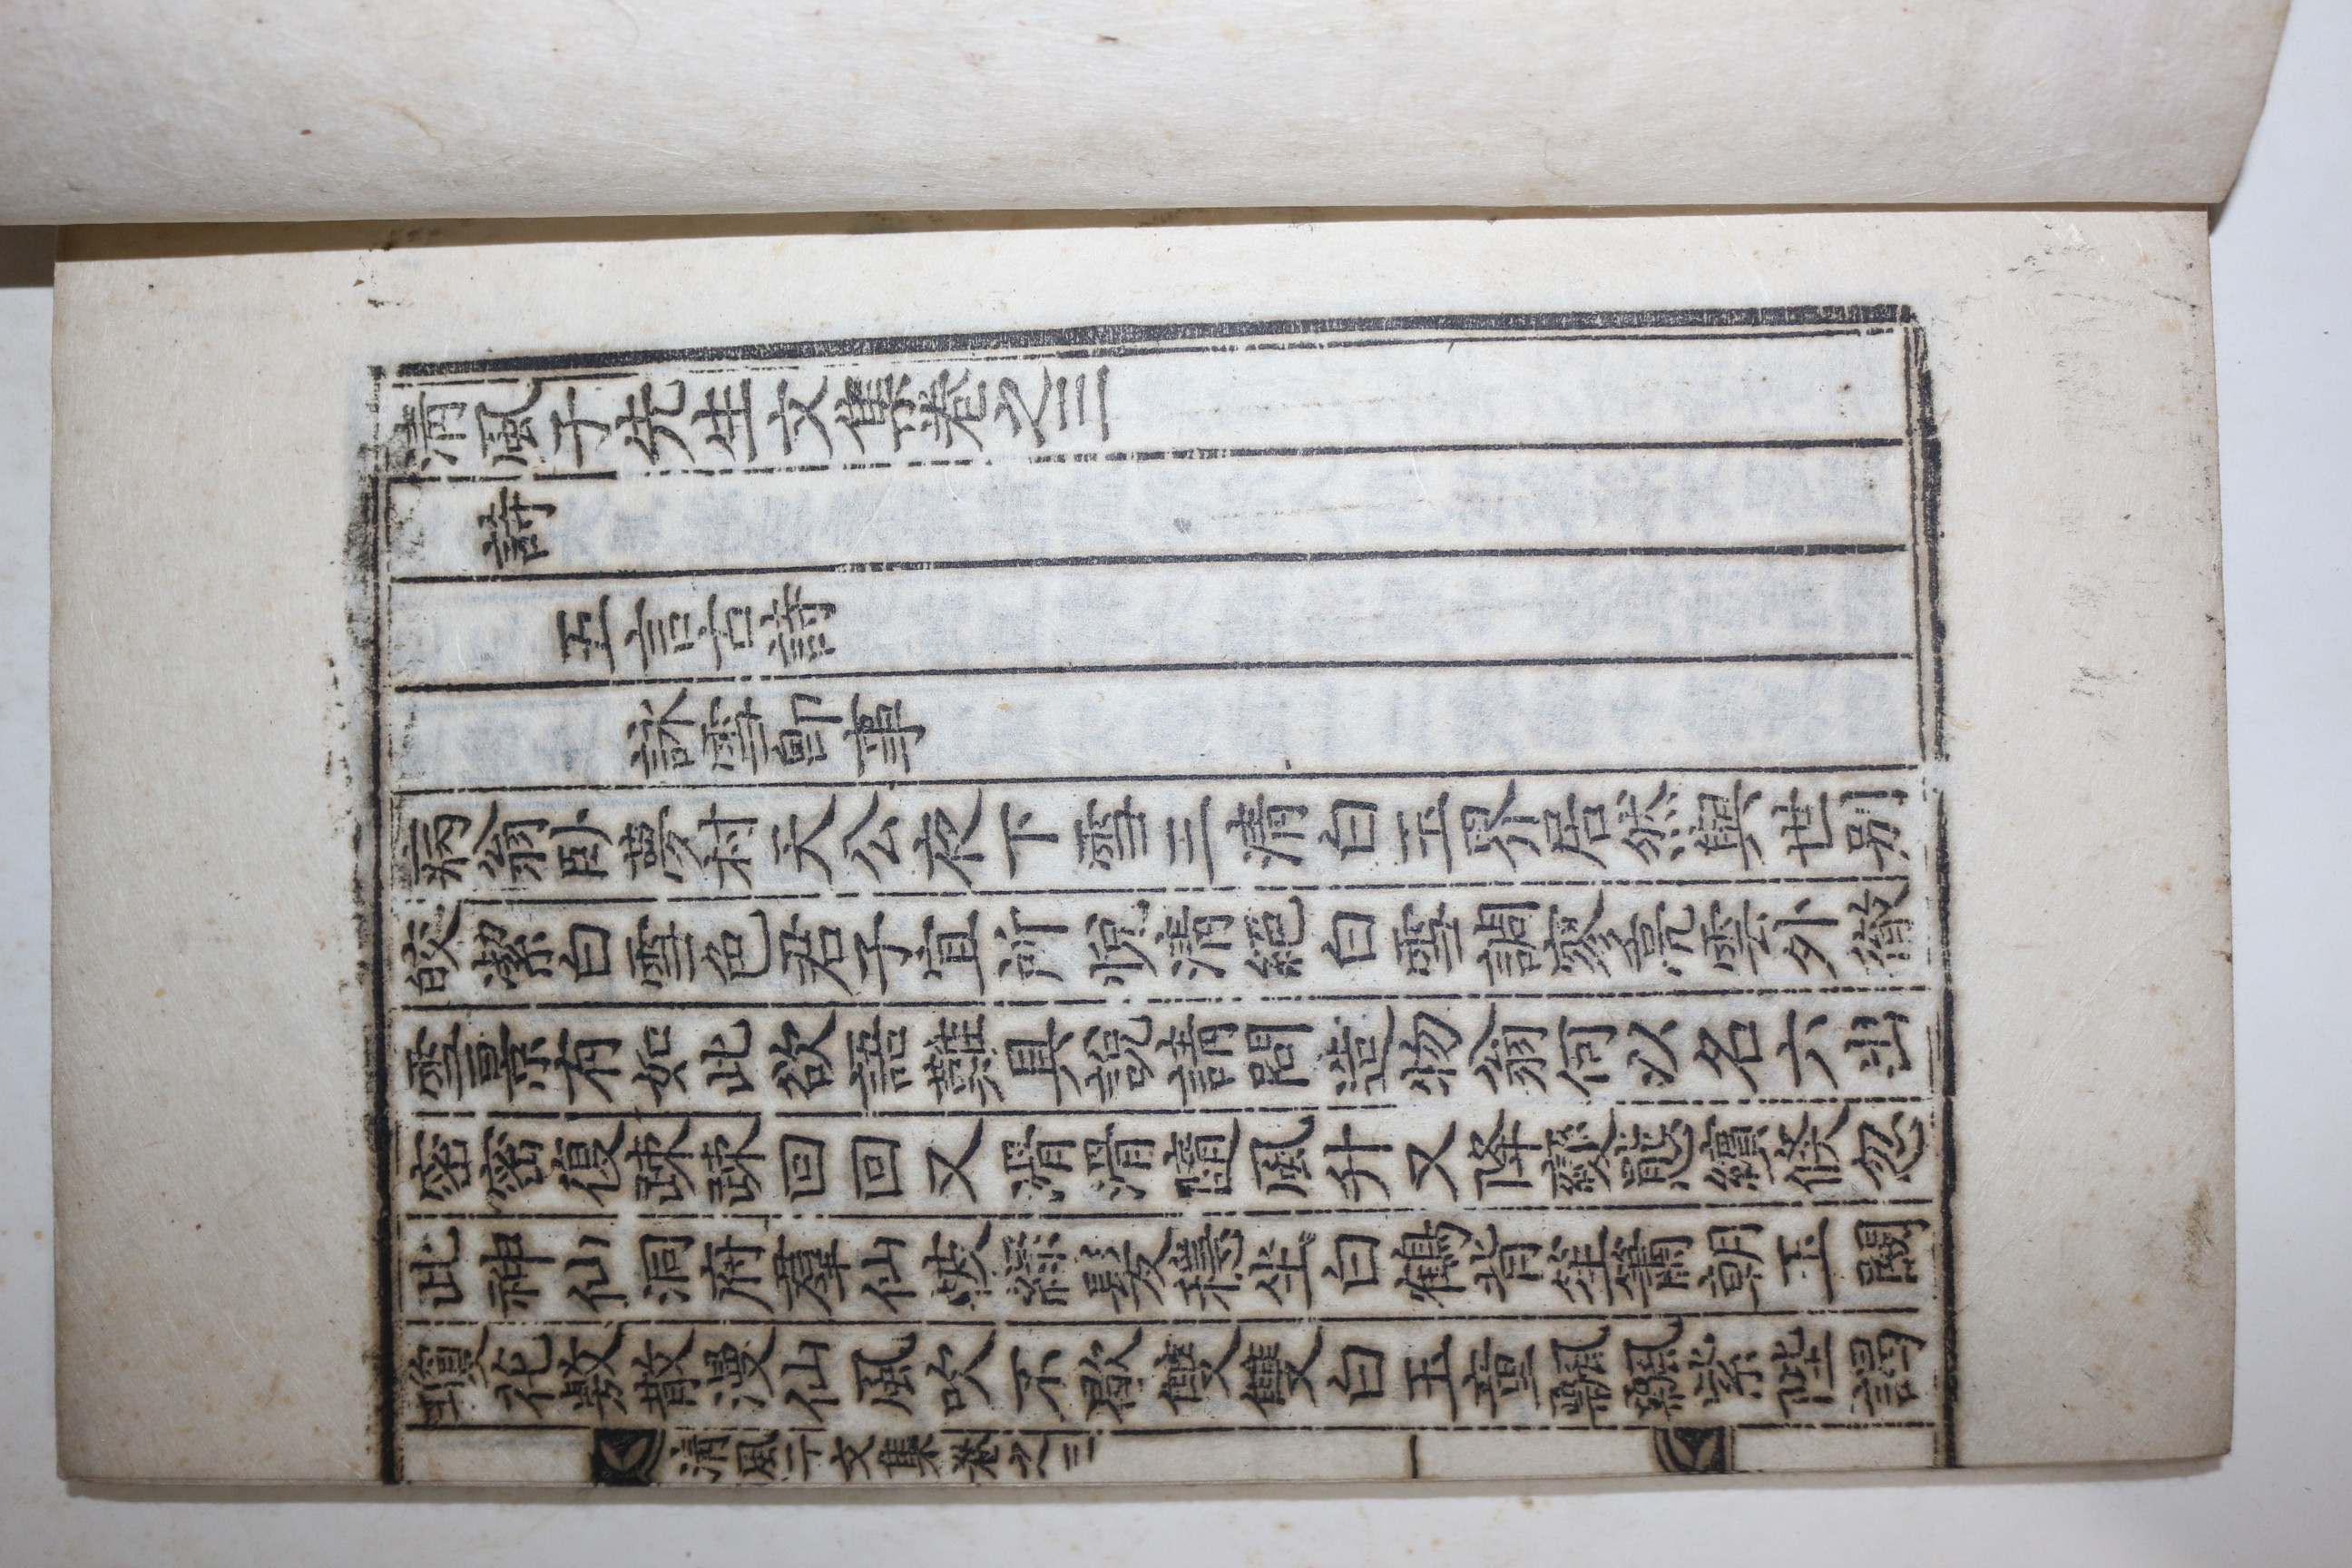 淸風子先生文集卷之三
詩
五言古詩
詠雪卽事
病翁卧夢村天公夜下雪三清白玉界居然與世别
皎潔白雪色君子宜所悅清絕白雪調寥亮雲外徹
雪景有如此欲語難具說請問造物翁何以名六出
密密復疎疎回回又滑滑隨風升又降變態續倐忽
此神仙洞府羣仙被綠髮穩坐白鶴背笙簫朝玉闕
瓊花敷散漫仙風吹不歇雙雙白玉童飄飄紫陛謁
淸風子文集 卷之三 一